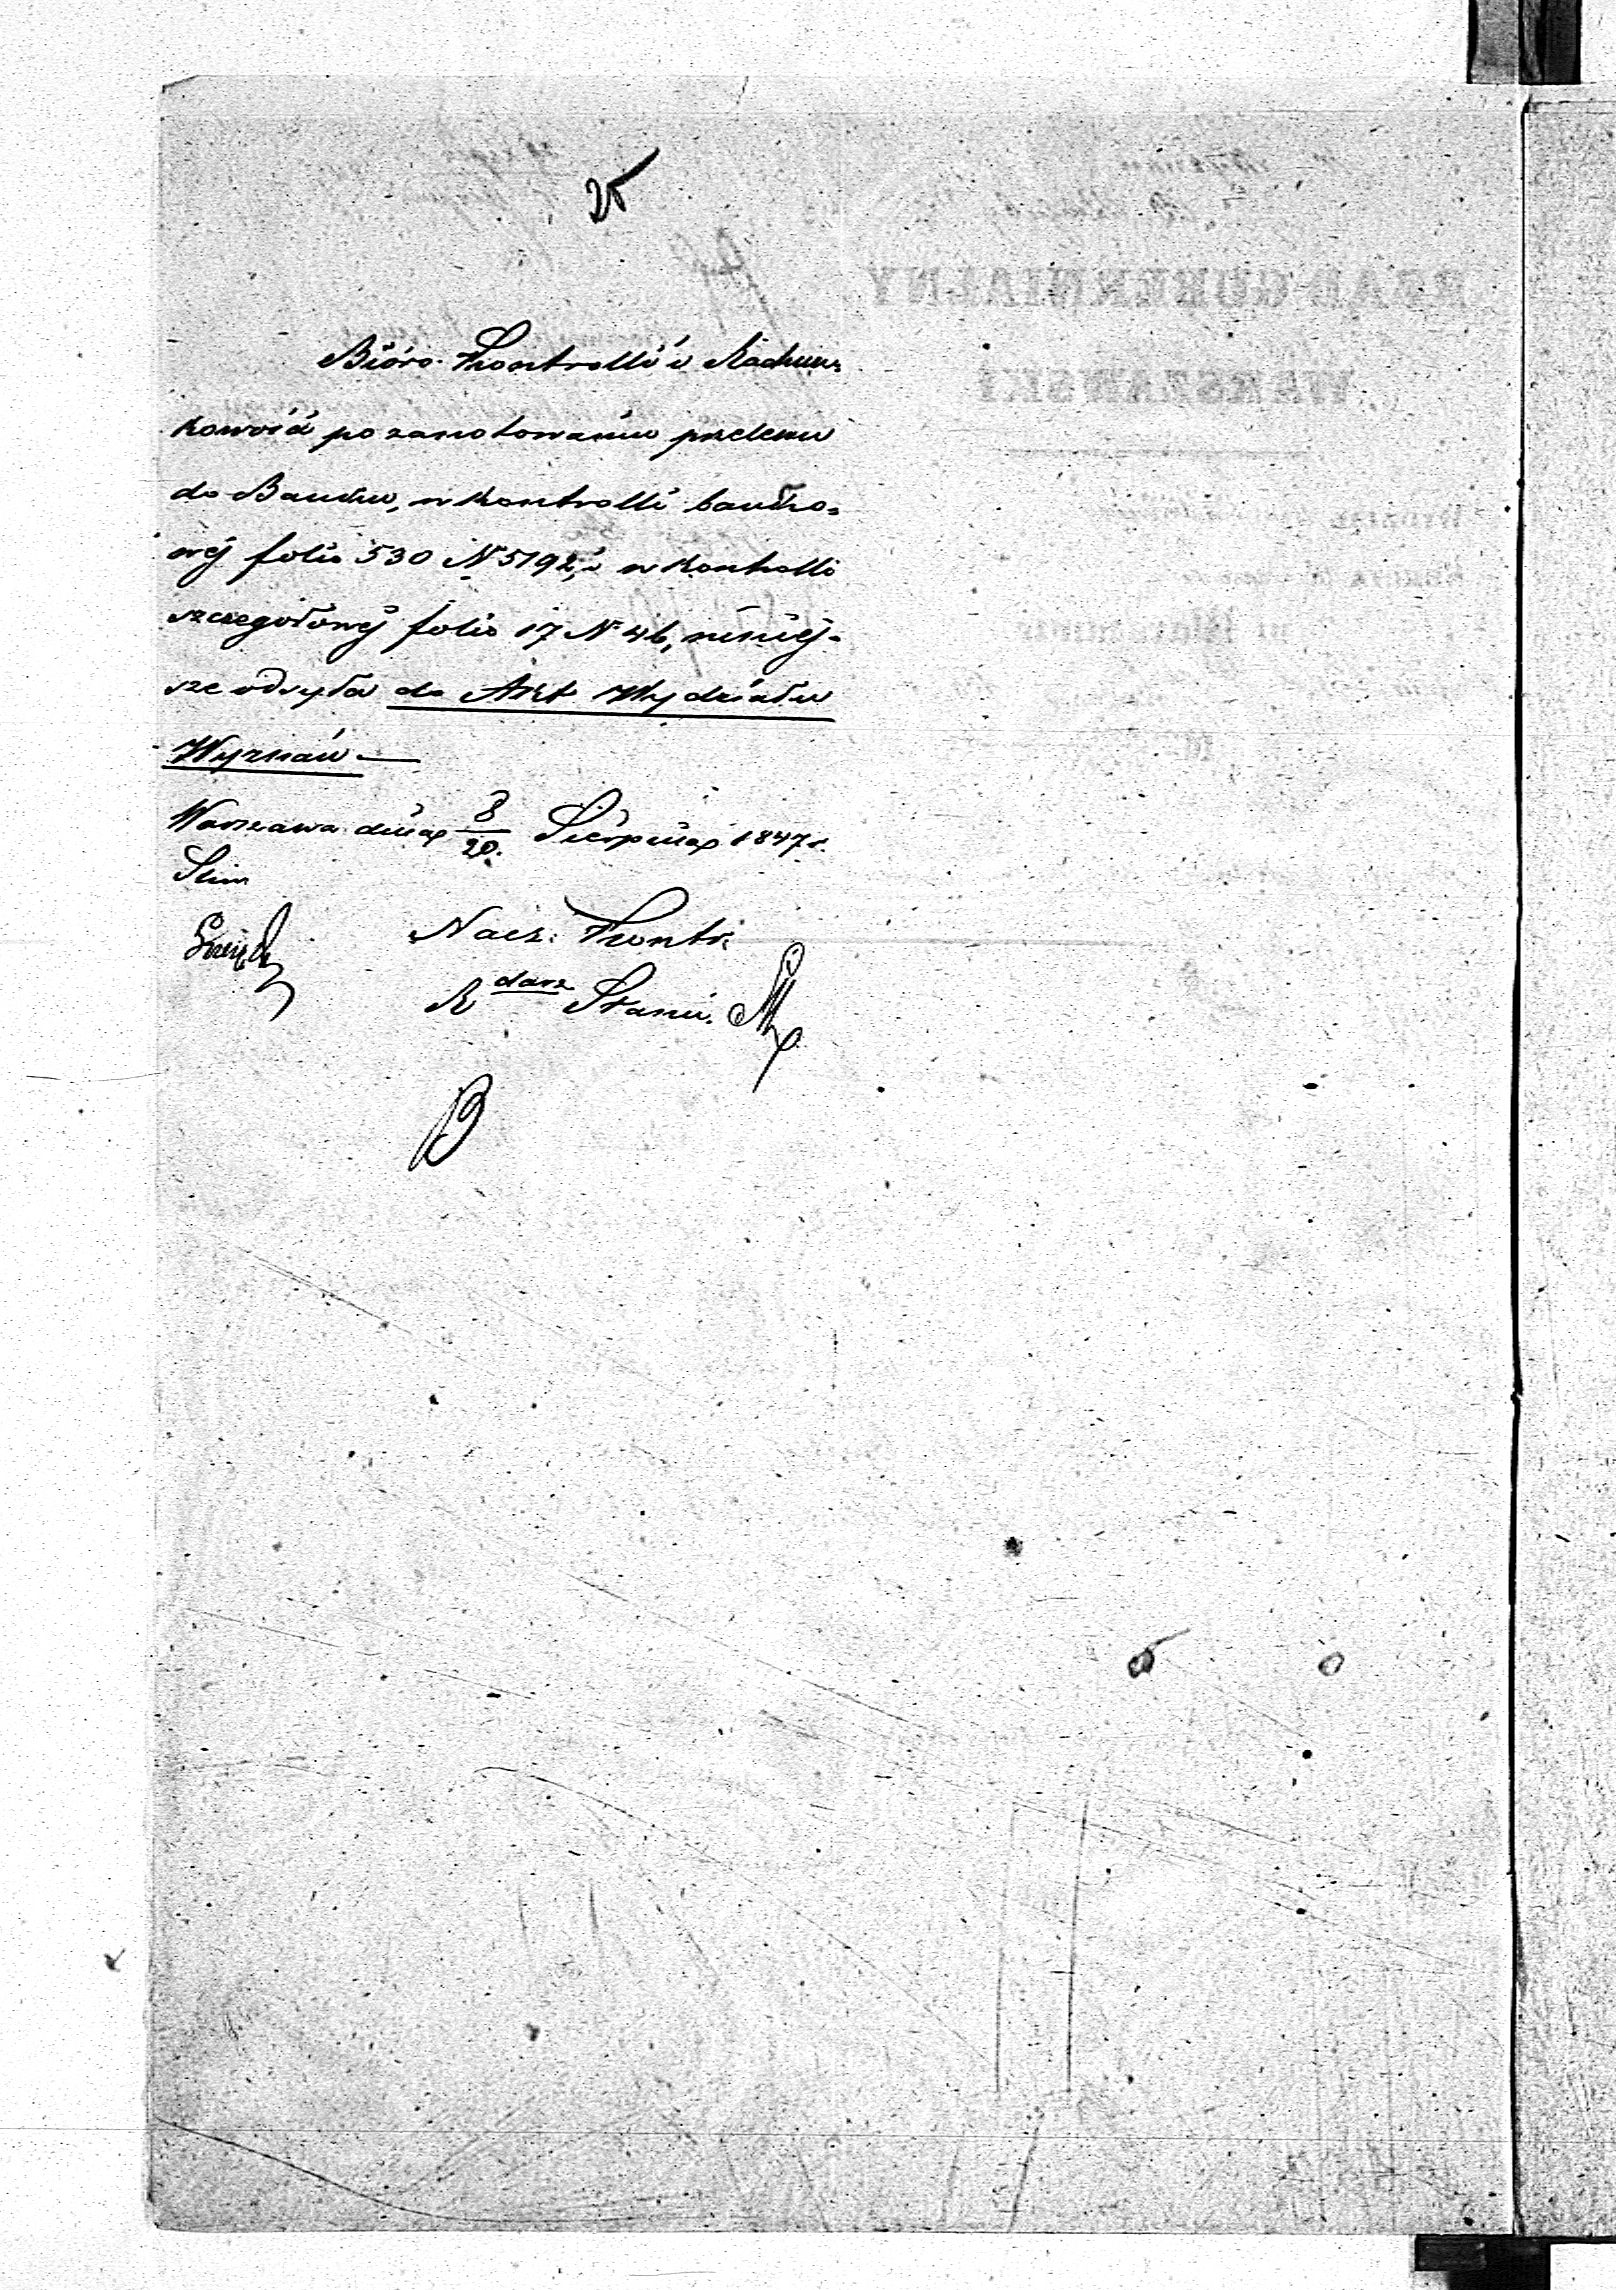 25
Bióro Kontrolli i Rachun=
kowości po zanotowaniu przelewu
do Banku, w Kontrolli banko=
wéj folio 530 N 5192, i w Kontrolli
szczegołowéj folio 17 N 46, niniéj=
sze odsyła do Akt Wydziału
Wyznań —
Warszawa dnia 8/20 Sierpnia 1847 r.
Nacz: Kontr:
R darz Stanu.